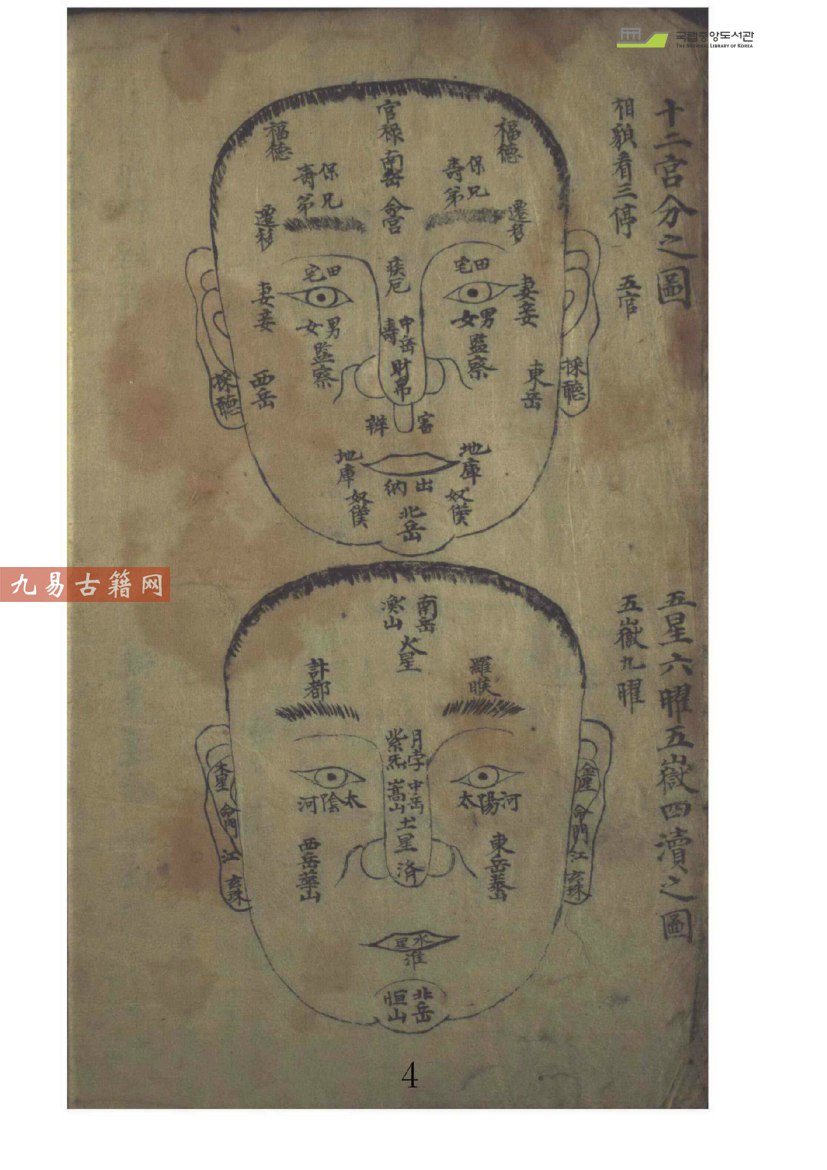 국립중앙도서관
THE NATIONAL LIBRARY OF KOREA
十二宮分之圖
相貌看三停 五官
官祿
南岳
命宮
疾厄
福德
福德
保壽
兄弟
保壽
兄弟
遷移
遷移
田宅
田宅
妻妾
妻妾
男女
男女
中岳
壽
財帛
監察
監察
東岳
西岳
採聽
採聽
審辨
地庫
地庫
出納
奴僕
奴僕
北岳
九易古籍网
五星六曜五嶽四瀆之圖
五嶽九曜
南岳
衡山
火星
羅睺
計都
月孛
紫炁
中岳
嵩山
土星
済
太陽河
太陰河
金星
命門
江
玄珠
木星
命門
江
玄珠
東岳華山
西岳華山
水星
淮
北岳
恒山
4